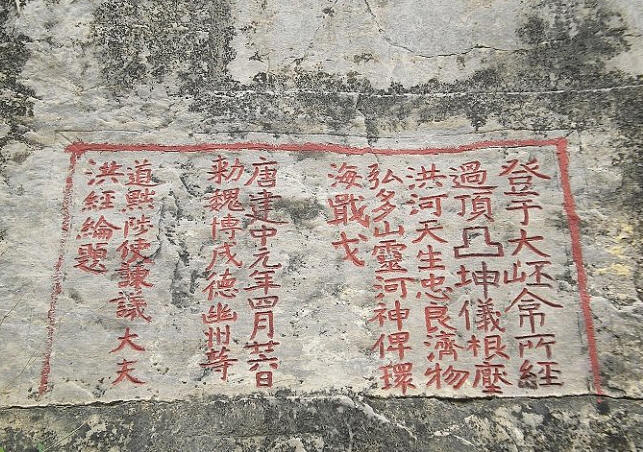 登于大岯所經
過頂凸坤儀根壓
洪河天生忠良濟物
弘多山靈河神俾環
海戢戈
唐建中元年四月廿六日
勑魏博成德幽州等
道黜陟使諫議大夫
洪經綸題